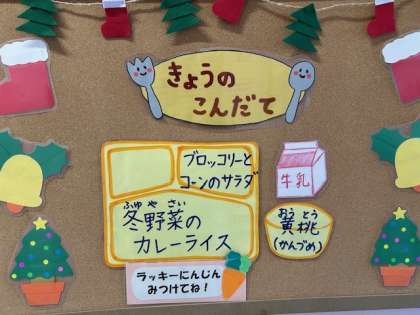 きょうの
こんだて
ブロッコリーと
コーンのサラダ
ふゆ や さい
冬野菜の
カレーライス
牛乳
おう とう
黄桃
(かんづめ)
ラッキーにんじん
みつけてね!